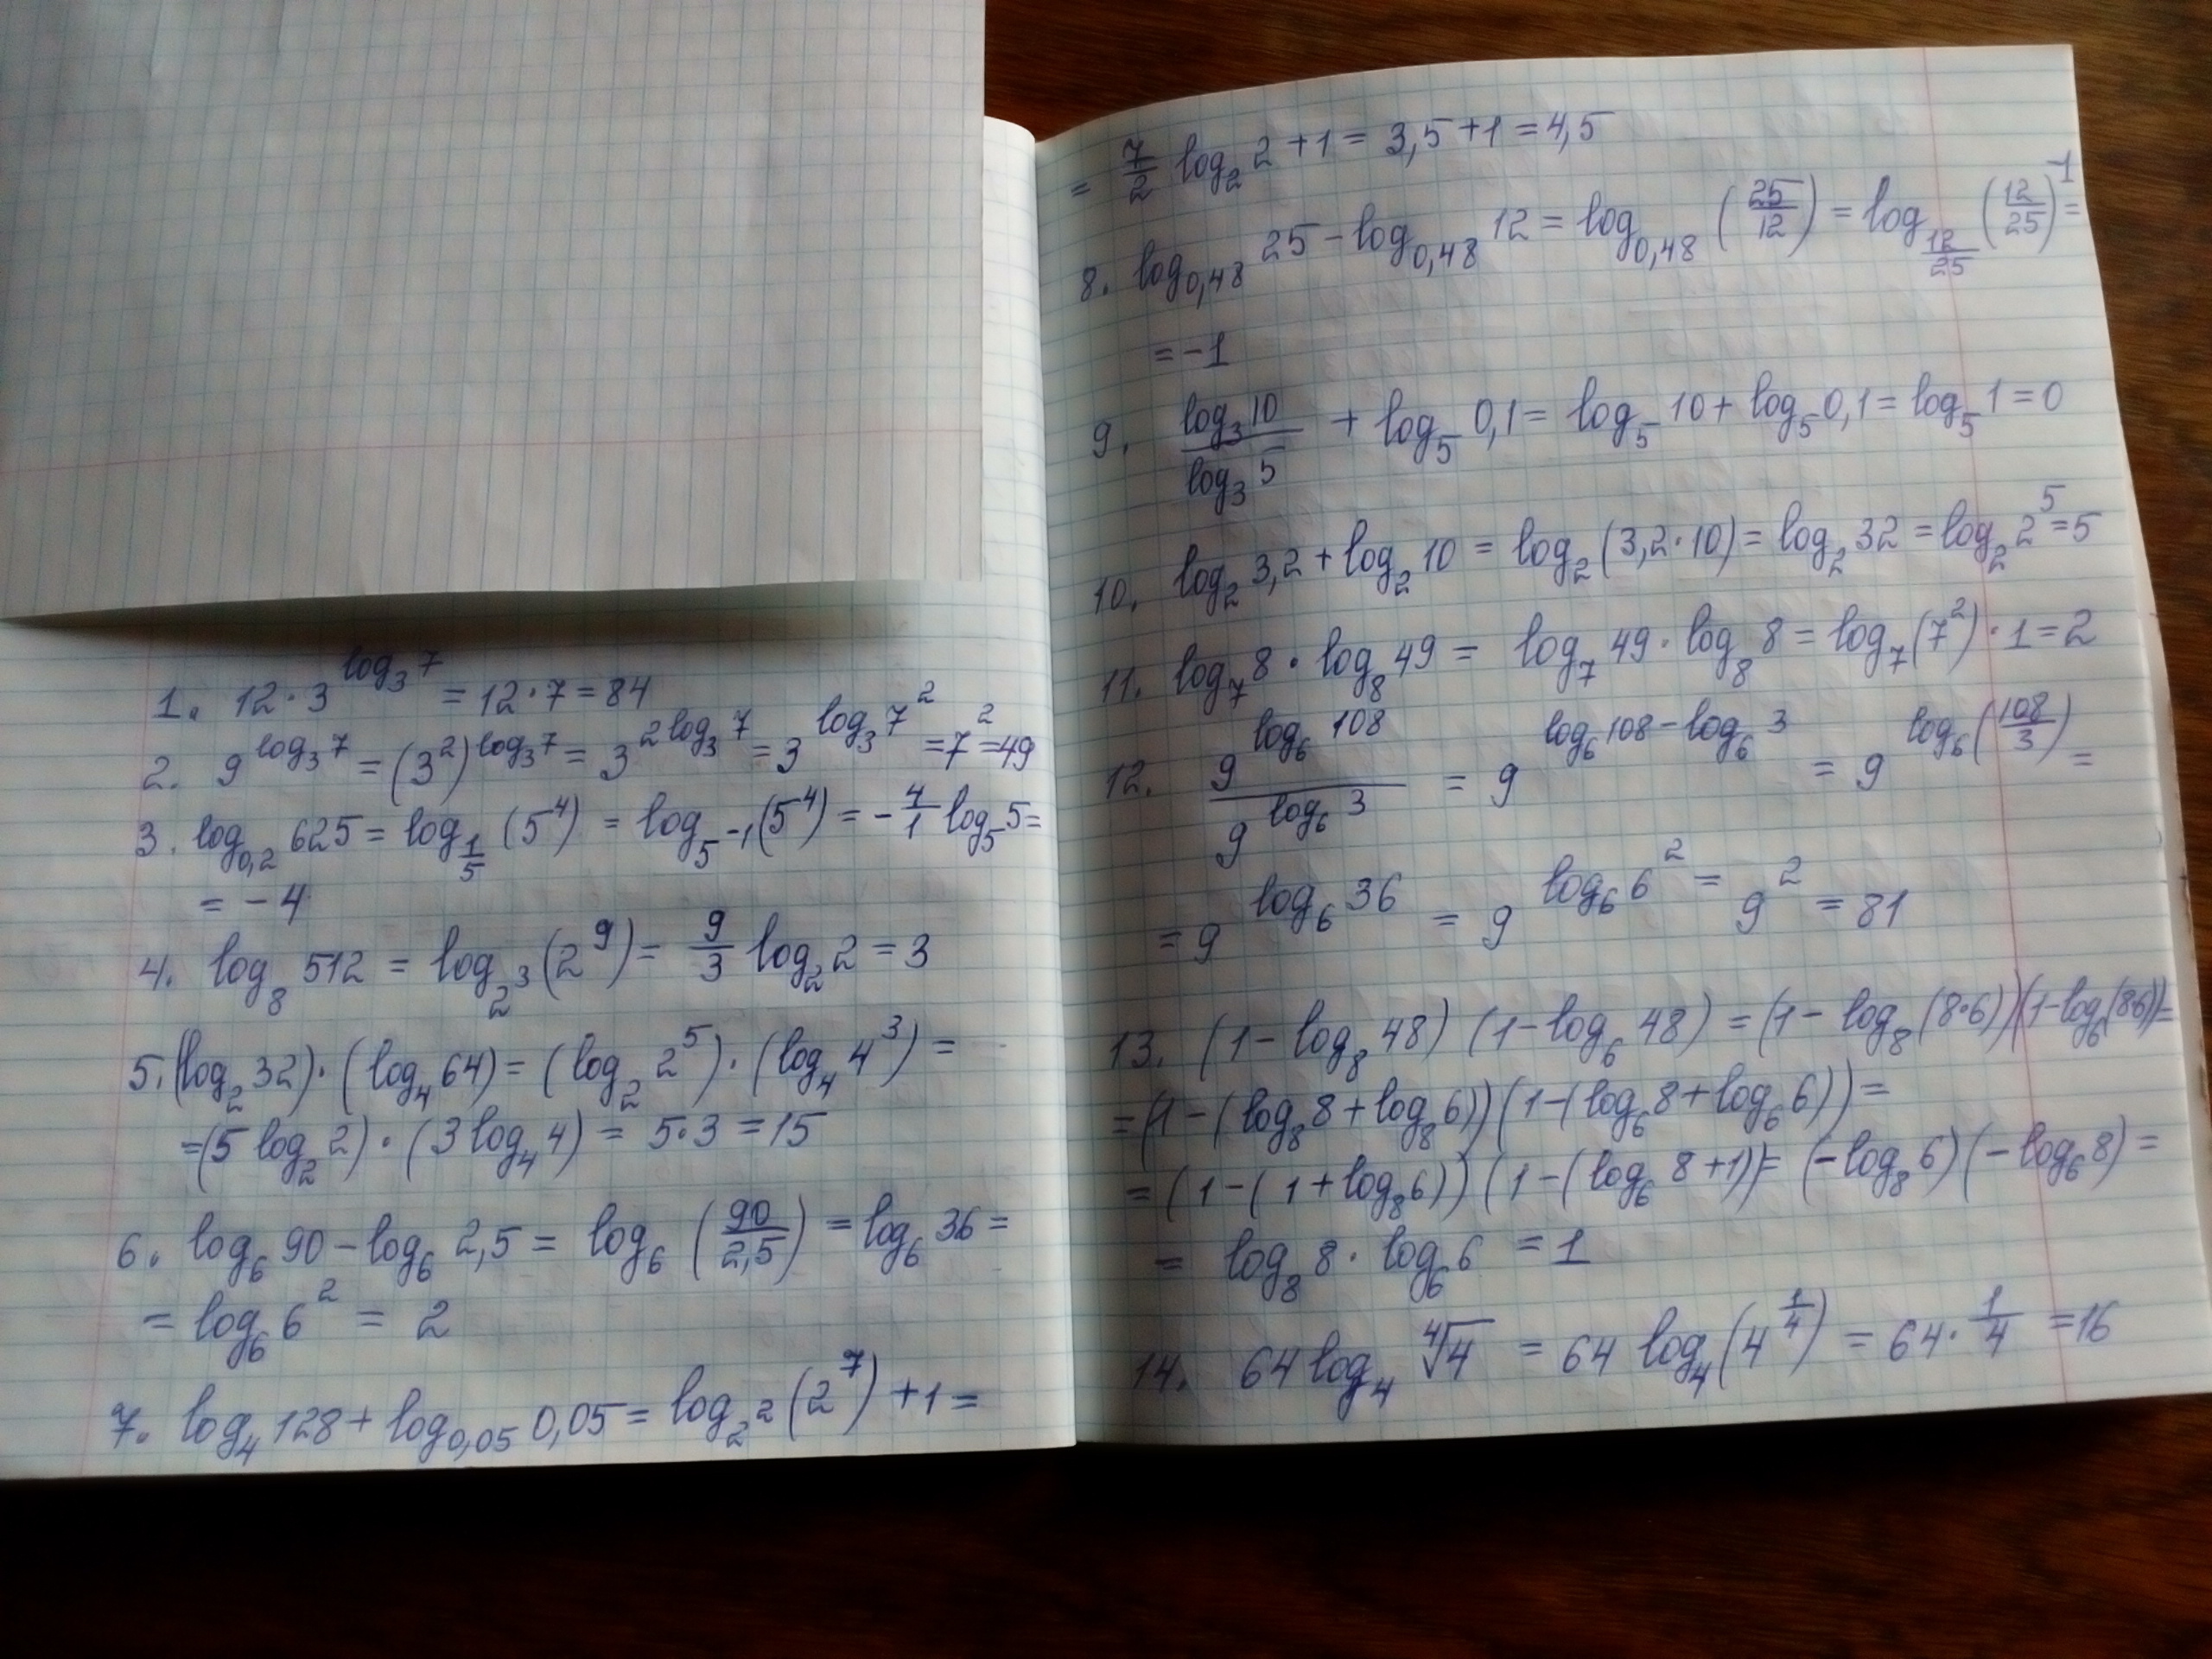 1. 12·3^{log_3 7} = 12·7=84
2. 9^{log_3 7} = (3^2)^{log_3 7} = 3^{2log_3 7} = 3^{log_3 7^2} = 7^2 = 49
3. log_{0,2} 625 = log_{1/5} (5^4) = log_{5^{-1}} (5^4) = -4/1 log_5 5 =
= -4
4. log_8 512 = log_{2^3} (2^9) = 9/3 log_2 2 = 3
5. (log_2 32)·(log_4 64) = (log_2 2^5)·(log_4 4^3) =
=(5 log_2 2)·(3 log_4 4) = 5·3 = 15
6. log_6 90 - log_6 2,5 = log_6 (90/2,5) = log_6 36 =
= log_6 6^2 = 2
7. log_4 128 + log_{0,05} 0,05 = log_{2^2} (2^7) + 1 =
= 7/2 log_2 2 + 1 = 3,5 + 1 = 4,5
8. log_{0,48} 25 - log_{0,48} 12 = log_{0,48} (25/12) = log_{12/25} (12/25)^{-1} =
= -1
9. log_3 10 / log_3 5 + log_5 0,1 = log_5 10 + log_5 0,1 = log_5 1 = 0
10. log_2 3,2 + log_2 10 = log_2 (3,2·10) = log_2 32 = log_2 2^5 = 5
11. log_7 8 · log_8 49 = log_7 49 · log_8 8 = log_7 (7^2) · 1 = 2
12. 9^{log_6 108} / 9^{log_6 3} = 9^{log_6 108 - log_6 3} = 9^{log_6 (108/3)} =
= 9^{log_6 36} = 9^{log_6 6^2} = 9^2 = 81
13. (1 - log_8 48) (1 - log_6 48) = (1 - log_8 (8·6))(1 - log_6 (8·6)) =
= (1 - (log_8 8 + log_8 6)) (1 - (log_6 8 + log_6 6)) =
= (1 - (1 + log_8 6)) (1 - (log_6 8 + 1)) = (-log_8 6) (-log_6 8) =
= log_8 8 · log_6 6 = 1
14. 64 log_4 ∜4 = 64 log_4 (4^{1/4}) = 64 · 1/4 = 16